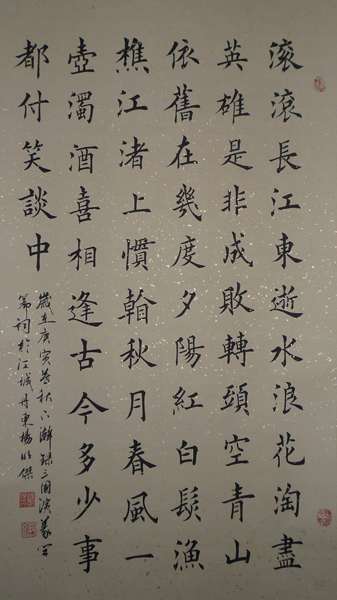 滾滾長江東逝水浪花淘盡
英雄是非成敗轉頭空青山
依舊在幾度夕陽紅白髮漁
樵江渚上慣翰秋月春風一
壺濁酒喜相逢古今多少事
都付笑談中
歲在庚寅秋錄三國演義開
篇詞於江城丹東楊明傑